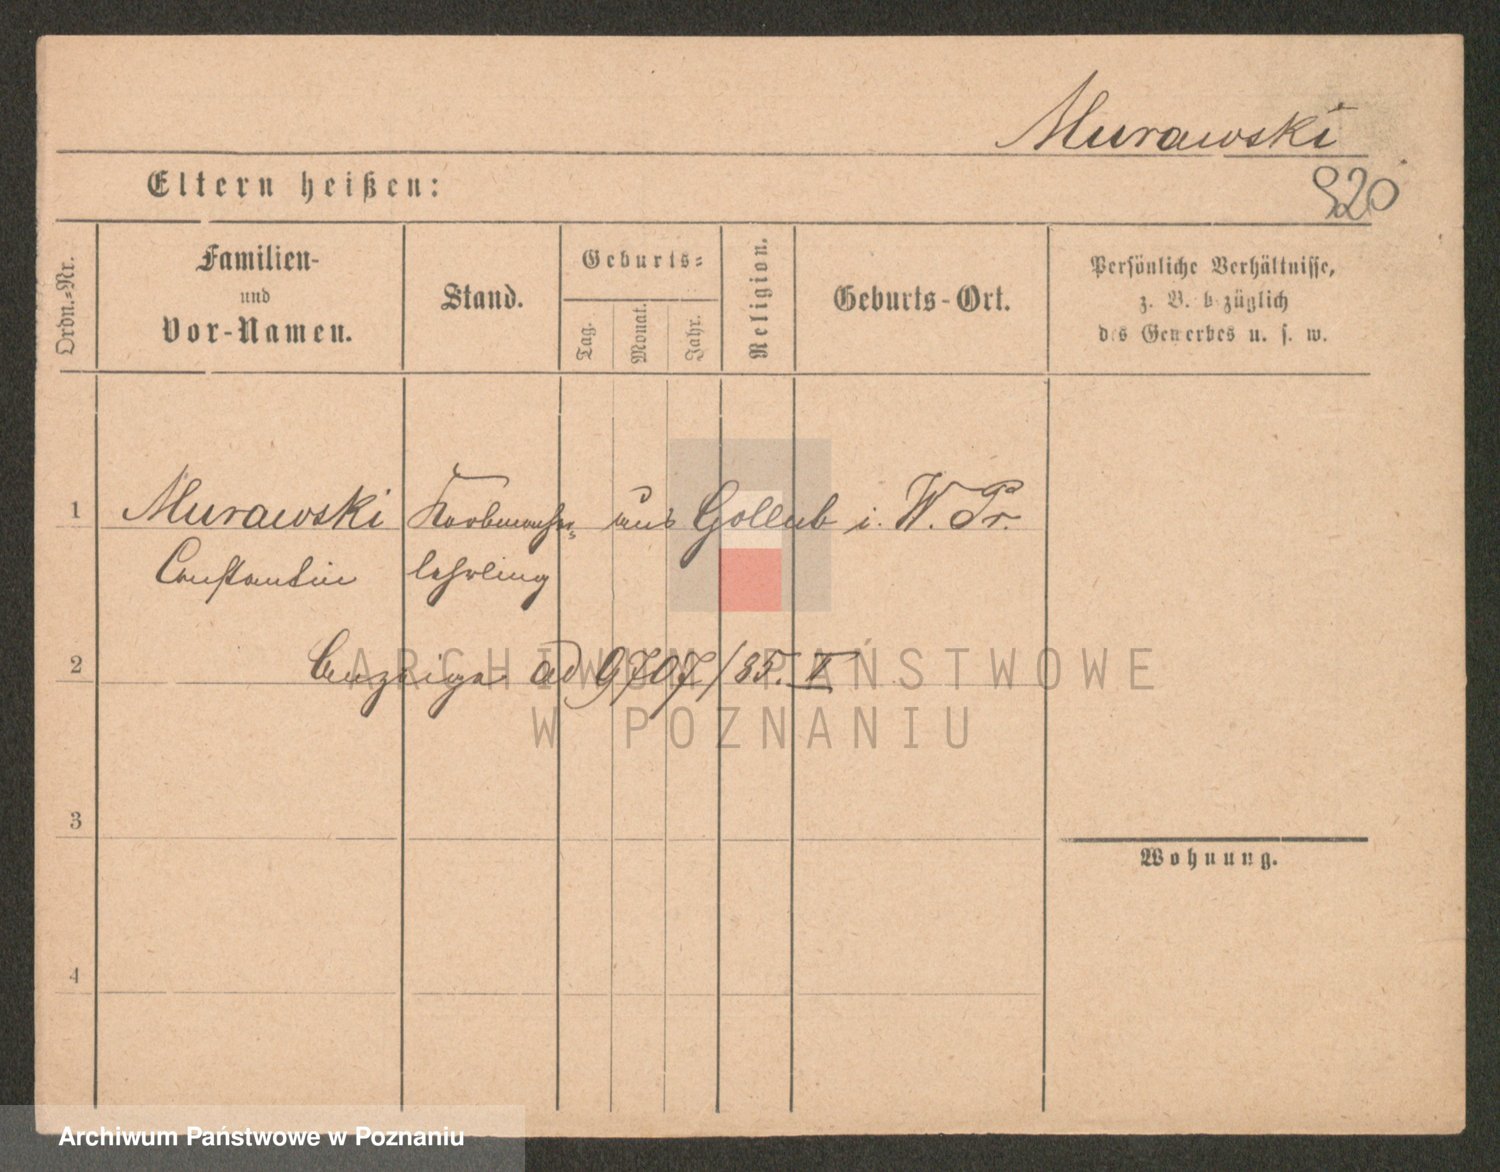 Murawski
Eltern heißen:
920
Ordn.-Nr.
Familien-
und
Vor-Namen.
Stand.
Geburts-
Tag.
Monat.
Jahr.
Religion.
Geburts-Ort.
Persönliche Verhältnisse,
z. B. bezüglich
des Gewerbes u. s. w.
1 Murawski Korbmacher- aus Gollub i. W. Pr.
Constantin lehrling
2 Anzeige ad 9707/85. II
ARCHIWUM PAŃSTWOWE
W POZNANIU
3
Wohnung.
4
Archiwum Państwowe w Poznaniu